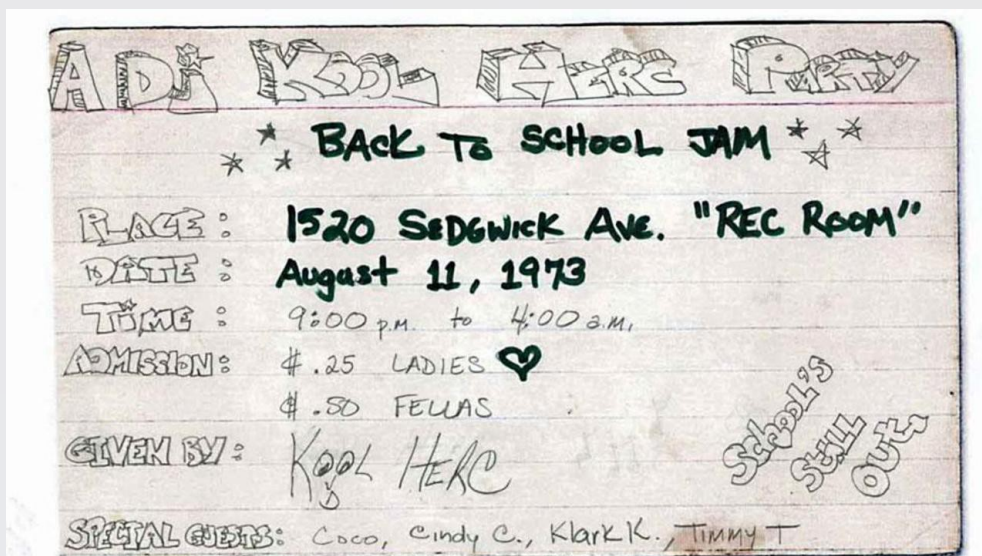 A DJ KOOL HERC PARTY
BACK TO SCHOOL JAM
PLACE: 1520 SEDGWICK AVE. "REC ROOM"
DATE: August 11, 1973
TIME: 9:00 p.m. to 4:00 a.m.
ADMISSION: $.25 LADIES
$.50 FELLAS
GIVEN BY: KOOL HERC
SCHOOL'S
STILL
OUT,
SPECIAL GUESTS: Coco, Cindy C., Klark K., Timmy T